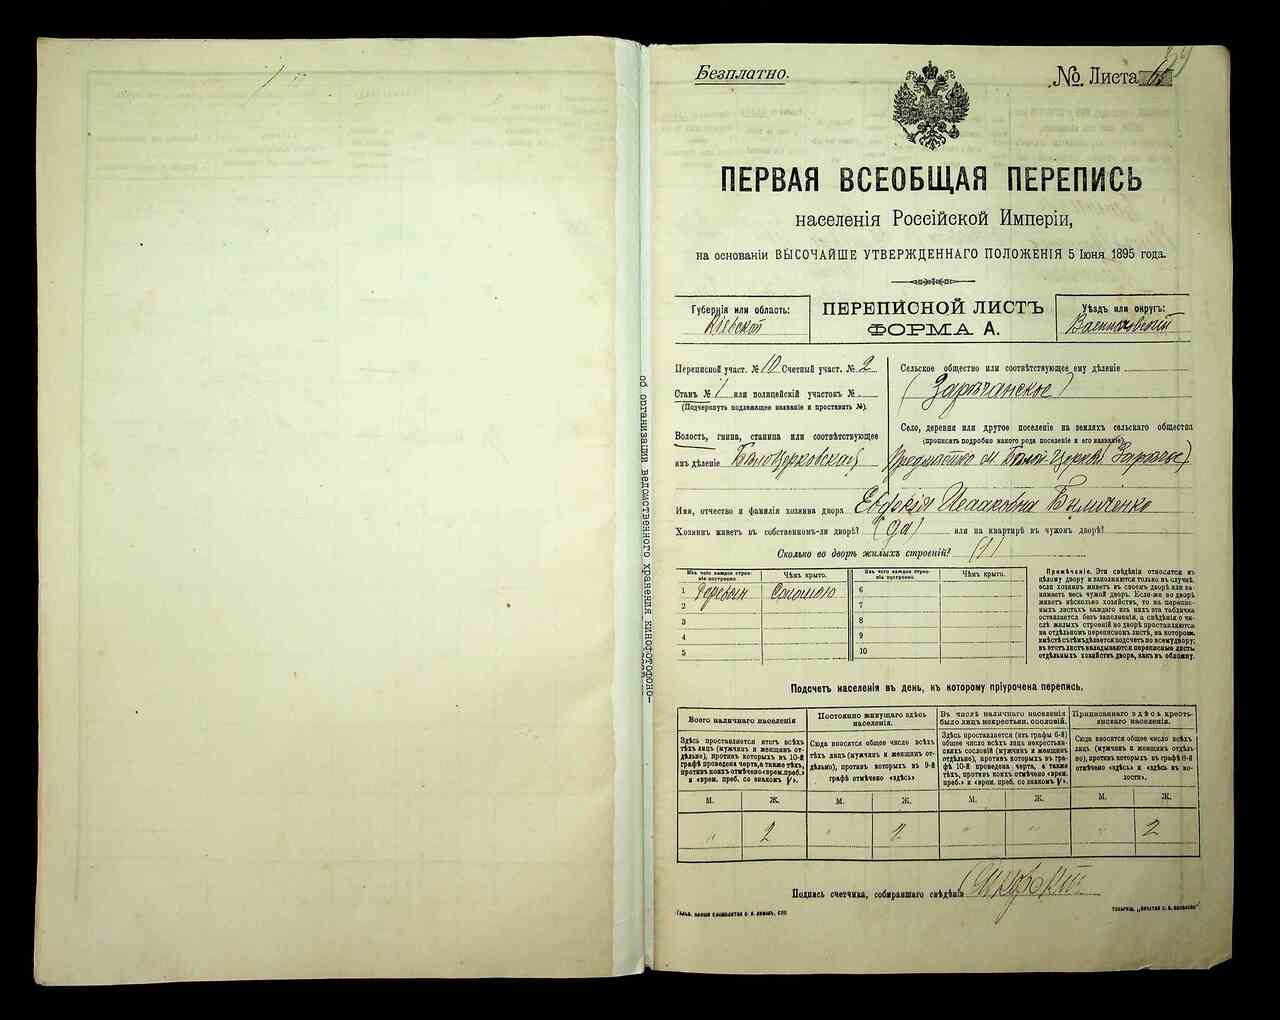 Безплатно.
№ Листа 65
39
ПЕРВАЯ ВСЕОБЩАЯ ПЕРЕПИСЬ
населенія Россійской Имперіи,
на основаніи ВЫСОЧАЙШЕ УТВЕРЖДЕННАГО ПОЛОЖЕНІЯ 5 Іюня 1895 года.
Губернія или область:
Кіевской
ПЕРЕПИСНОЙ ЛИСТЪ
ФОРМА А.
Уѣздъ или округъ:
Васильковскій
Переписной участ. № 10 Счетный участ. № 2
Станъ № 1 или полицейскій участокъ №
(Подчеркнуть подлежащее названіе и проставить №).
Волость, гмина, станица или соотвѣтствующее
имъ дѣленіе Бѣлоцерковской
Сельское общество или соотвѣтствующее ему дѣленіе
(Зарѣчанское)
Село, деревня или другое поселеніе на земляхъ сельскаго общества
(прописать подробно какого рода поселеніе и его названіе)
Предмѣстье м. Бѣлой-Церкви Зарѣчье)
Имя, отчество и фамилія хозяина двора Евфросинія Исааковна
Хозяинъ живетъ въ собственномъ-ли дворѣ? (да) или на квартирѣ въ чужомъ дворѣ?
Сколько во дворѣ жилыхъ строеній? (1)
Изъ чего каждое строеніе построено.
Чѣмъ крыто.
Изъ чего каждое строеніе построено.
Чѣмъ крыто.
1 Деревян Соломою 6
2 7
3 8
4 9
5 10
Примѣчаніе. Эти свѣдѣнія относятся къ
цѣлому двору и заполняются только въ случаѣ,
если хозяинъ живетъ въ своемъ дворѣ или занимаетъ
весь чужой дворъ. Если-же во дворѣ
живетъ нѣсколько хозяйствъ, то на переписныхъ
листахъ каждаго изъ нихъ эта табличка
оставляется безъ заполненія, а свѣдѣнія о числѣ
жилыхъ строеній во дворѣ проставляются
на отдѣльномъ переписномъ листѣ, на которомъ
вмѣстѣ съ тѣмъ дѣлается подсчетъ по всему двору;
въ этотъ листъ вкладываются переписные листы
отдѣльныхъ хозяйствъ двора, какъ въ обложку.
Подсчетъ населенія въ день, къ которому пріурочена перепись.
Всего наличнаго населенія
Здѣсь проставляется итогъ всѣхъ
тѣхъ лицъ (мужчинъ и женщинъ отдѣльно),
противъ которыхъ въ 10-й
графѣ проведена черта, а также тѣхъ,
противъ коихъ отмѣчено «врем. преб.»
и «врем. преб. со знакомъ V».
Постоянно живущаго здѣсь
населенія.
Сюда вносятся общее число всѣхъ
тѣхъ лицъ (мужчинъ и женщинъ отдѣльно),
противъ которыхъ въ 9-й
графѣ отмѣчено «здѣсь»
Въ числѣ наличнаго населенія
было лицъ некрестьян. сословій.
Здѣсь проставляется (изъ графы 6-й)
общее число всѣхъ некрестьянскихъ
сословій (мужчинъ и женщинъ
отдѣльно), противъ которыхъ въ графѣ
10-й проведена черта, а также
тѣхъ, противъ коихъ отмѣчено «врем.
преб.» и «врем. преб. со знакомъ V».
Приписаннаго здѣсь крестьянскаго
населенія.
Сюда вносятся общее число всѣхъ
лицъ (мужчинъ и женщинъ отдѣльно),
противъ которыхъ въ графѣ 8-й
отмѣчено «здѣсь» и «здѣсь въ волости».
М. Ж. М. Ж. М. Ж. М. Ж.
" 2 " 2 " " " 2
Подпись счетчика, собиравшаго свѣдѣнія
об организации ведомственного хранения кинофотофоно-